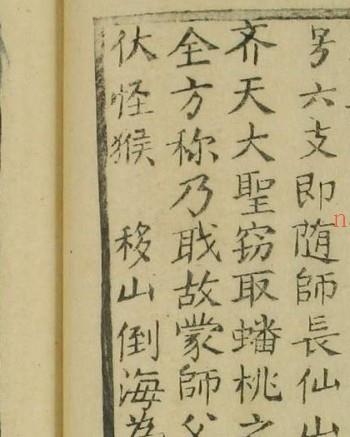 号六支即随師長仙山
齐天大聖窃取蟠桃之
全方称乃故蒙師父
伏怪猴 移山倒海為